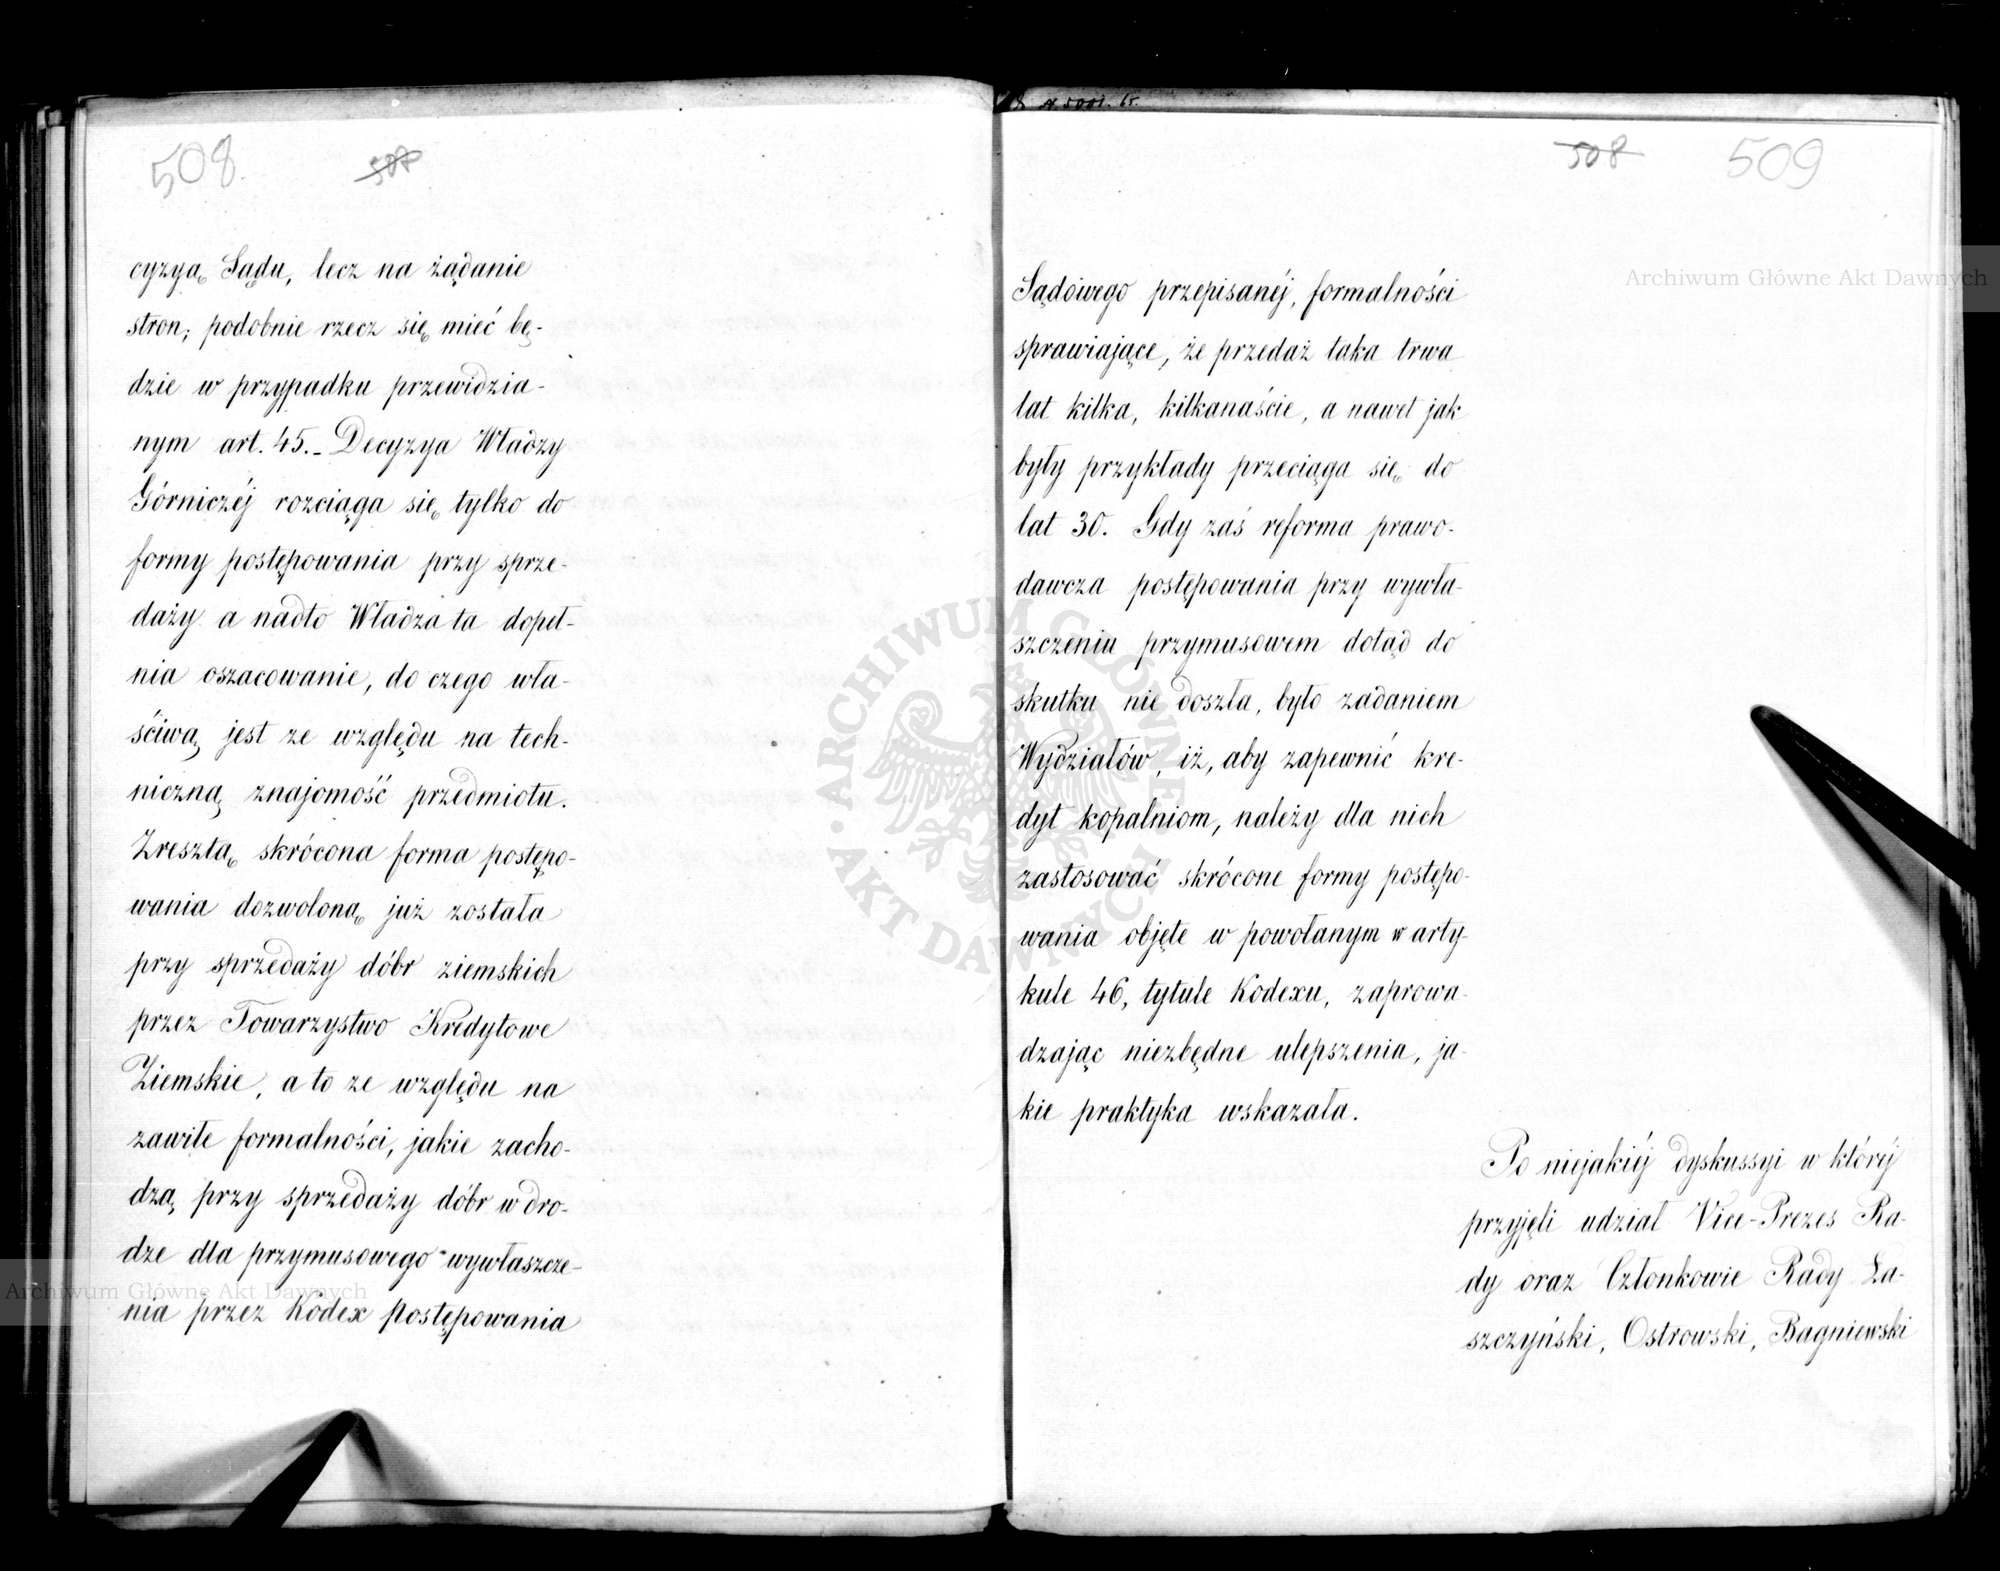 508
508
cyzyą Sądu, lecz na żądanie
stron; podobnie rzecz się mieć bę-
dzie w przypadku przewidzia-
nym art. 45. – Decyzya Władzy
Górniczéj rozciąga się tylko do
formy postępowania przy sprze-
daży a nadto Władza ta dopeł-
nia oszacowanie, do czego wła-
ściwą jest ze względu na tech-
niczną znajomość przedmiotu.
Zresztą skrócona forma postępo-
wania dozwoloną już została
przy sprzedaży dóbr ziemskich
przez Towarzystwo Kredytowe
Ziemskie, a to ze względu na
zawiłe formalności, jakie zacho-
dzą przy sprzedaży dóbr w dro-
dze dla przymusowego wywłaszcze-
nia przez Kodex Postępowania
508
509
Sądowego przepisanéj, formalności
sprawiające, że przedaż taka trwa
lat kilka, kilkanaście, a nawet jak
były przykłady przeciąga się do
lat 30. Gdy zaś reforma prawo-
dawcza postępowania przy wywła-
szczeniu przymusowem dotąd do
skutku nie doszła, było zadaniem
Wydziałów, iż, aby zapewnić kre-
dyt kopalniom, należy dla nich
zastosować skrócone formy postępo-
wania objęte w powołanym w arty-
kule 46, tytule Kodexu, zaprowa-
dzając niezbędne ulepszenia, ja-
kie praktyka wskazała.
Po niejakiéj dyskussyi w któréj
przyjęli udział Vice-Prezes Ra-
dy oraz Członkowie Rady Ła-
szczyński, Ostrowski, Bagniewski
Archiwum Główne Akt Dawnych
Archiwum Główne Akt Dawnych
ARCHIWUM GŁÓWNE
AKT DAWNYCH